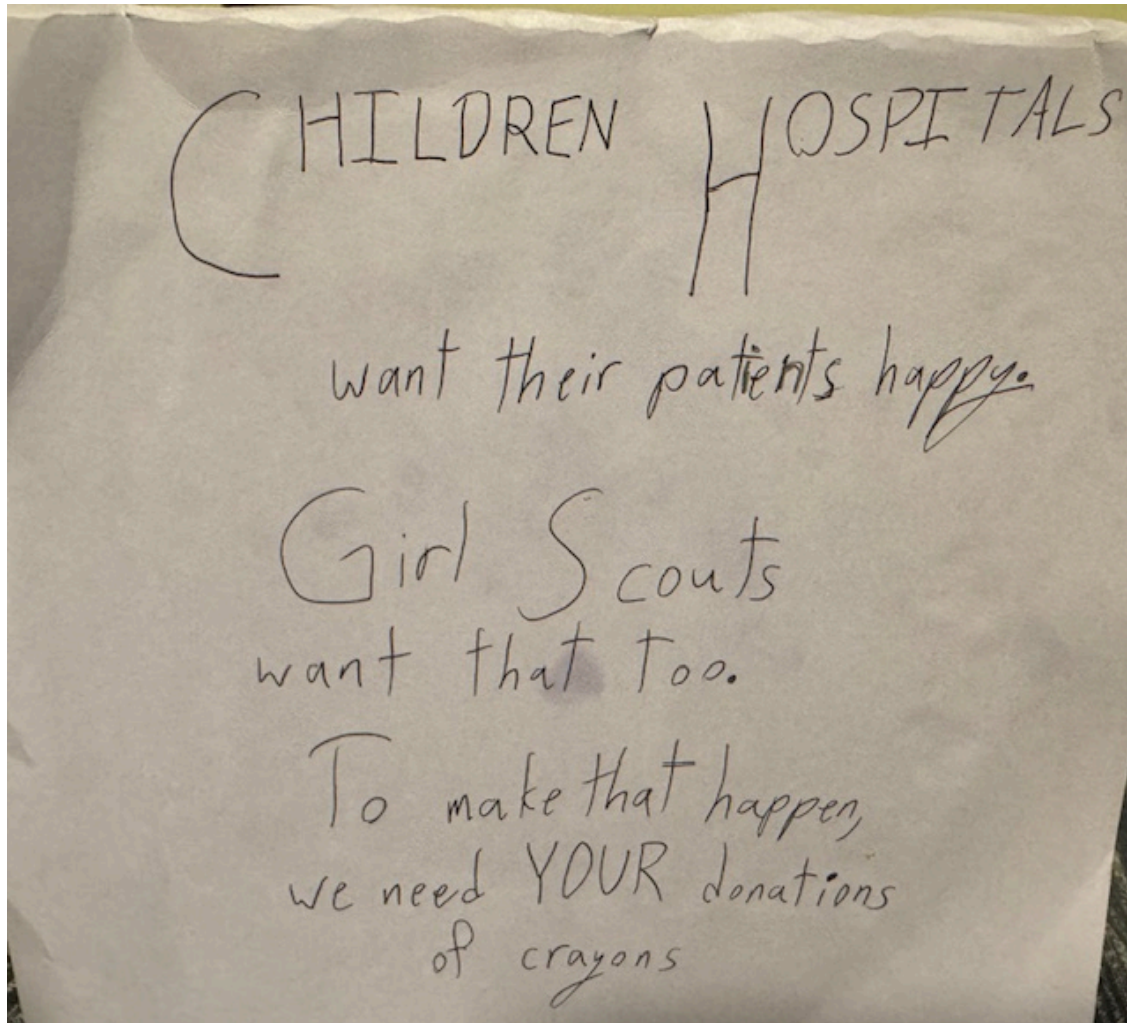 CHILDREN HOSPITALS
want their patients happy.
Girl Scouts
want that too.
To make that happen,
we need YOUR donations
of crayons